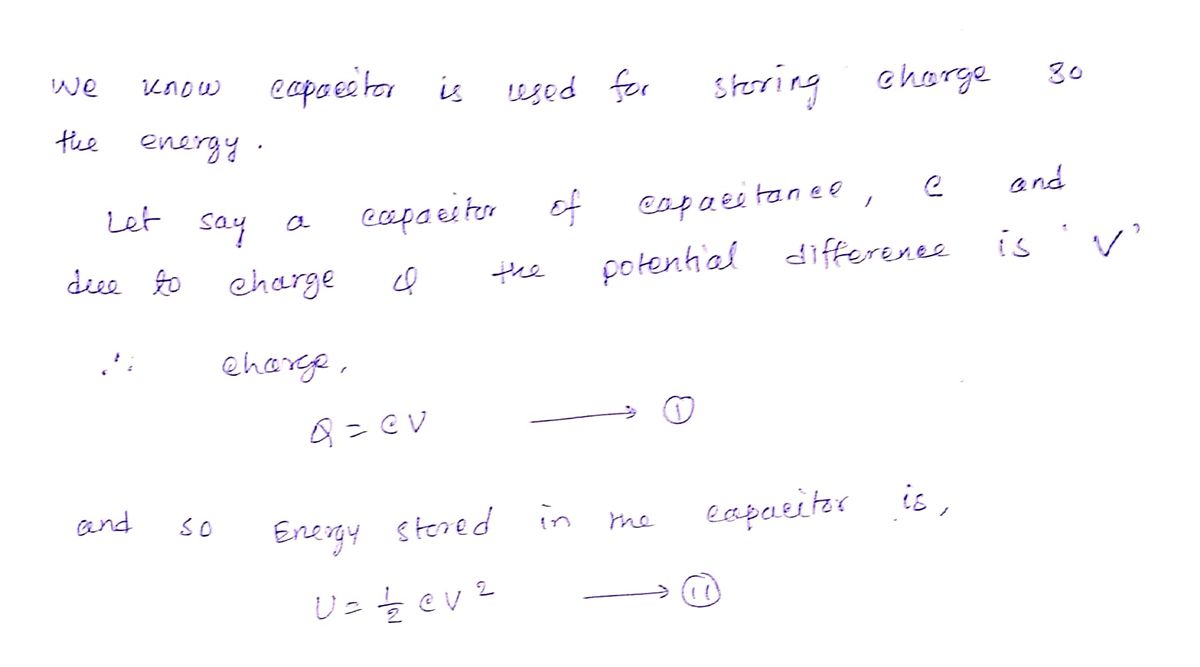 We know capacitor is used for storing charge so
the energy.
Let say a capacitor of capacitance, C and
due to charge Q the potential difference is 'V'
∴ charge,
Q = CV ⟶ ①
and so Energy stored in the capacitor is,
U = 1/2 CV² ⟶ (ii)